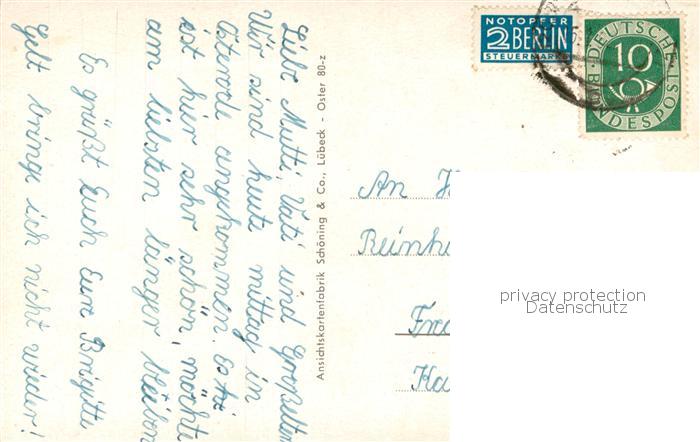 NOTOPFER
2 BERLIN
STEUERMARKE
DEUTSCHE
BUNDESPOST
10
Liebe Mutti, Vati und Großelter
Wir sind heute mittag in
Osterode angekommen. Es
ist hier sehr schön, möchte
am liebsten länger bleiben
Es grüßt Euch Eure Brigitte
Gelt bringe ich nicht wieder!
Ansichtskartenfabrik Schöning & Co., Lübeck - Oster 80-z
An H
Reinh
Fra
Ka
privacy protection
Datenschutz